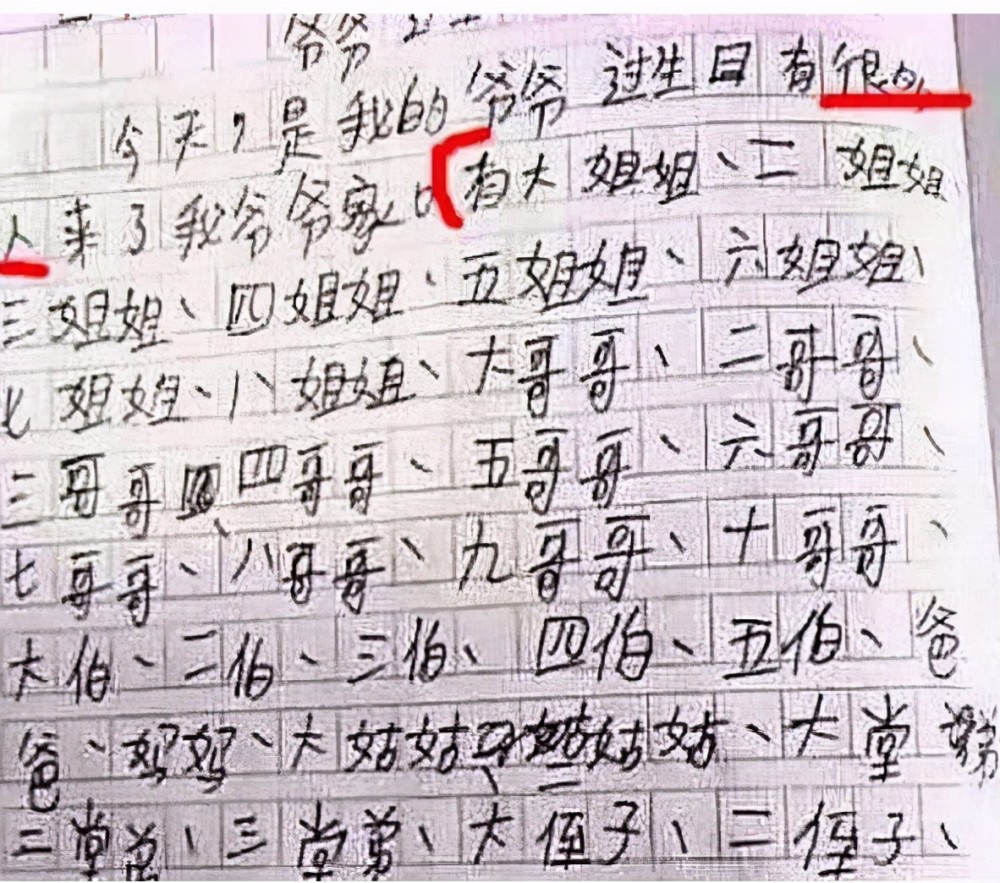 爷爷
今天,是我的爷爷过生日有很的
人来了我爷爷家。有大姐姐、二姐姐
三姐姐、四姐姐、五姐姐、六姐姐、
七姐姐、八姐姐、大哥哥、二哥哥、
三哥哥、四哥哥、五哥哥、六哥哥、
七哥哥、八哥哥、九哥哥、十哥哥、
大伯、二伯、三伯、四伯、五伯、爸
爸、妈妈、大姑姑、二姑姑、大堂弟
二堂弟、三堂弟、大侄子、二侄子、